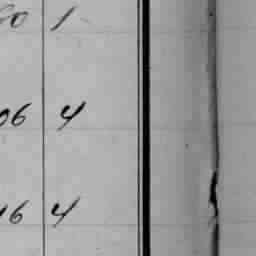 60 1
06 4
16 4